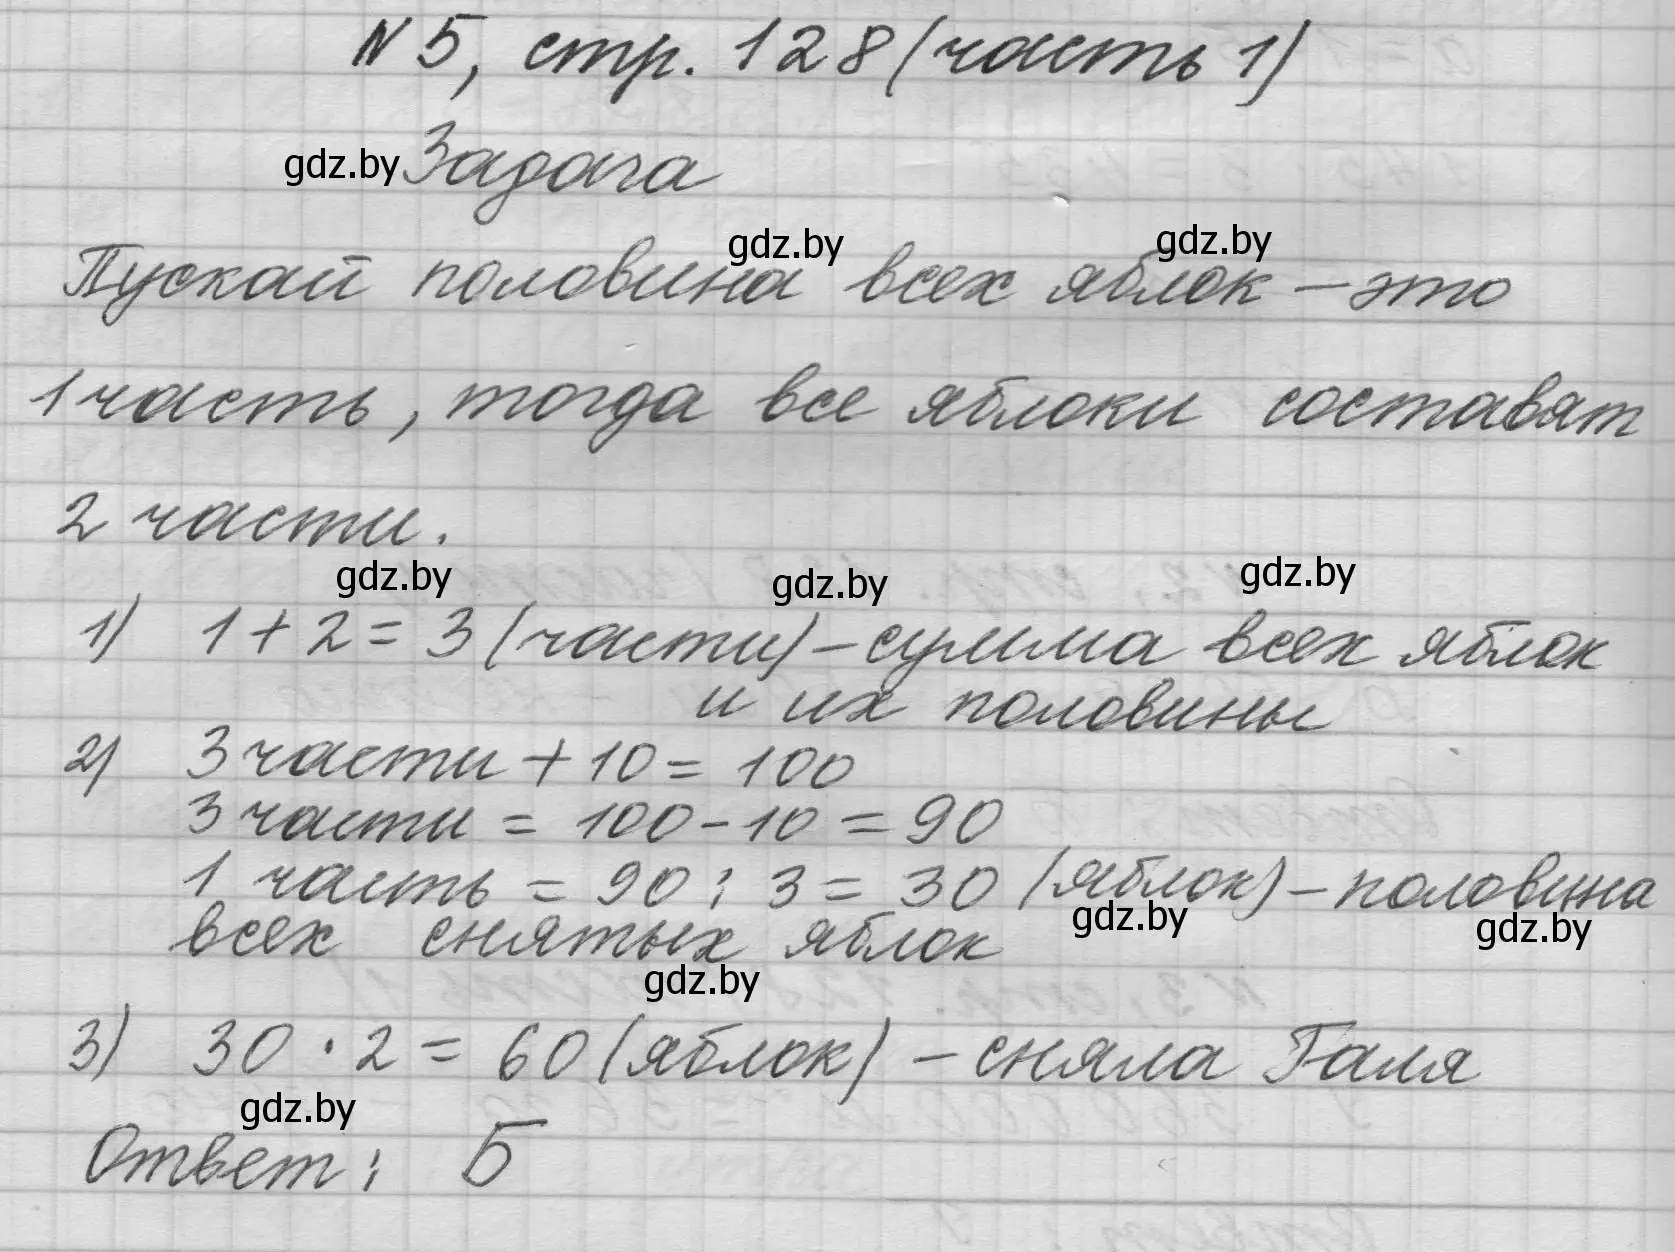 №5, стр. 128 (часть 1)
gdz.by Задача
gdz.by gdz.by
Пускай половина всех яблок – это
1 часть, тогда все яблоки составят
2 части.
gdz.by gdz.by gdz.by
1) 1 + 2 = 3 (части) – сумма всех яблок
и их половины
2) 3 части + 10 = 100
3 части = 100 - 10 = 90
1 часть = 90 : 3 = 30 (яблок) – половина
gdz.by gdz.by
всех снятых яблок
gdz.by
3) 30 · 2 = 60 (яблок) – сняла Галя
gdz.by
Ответ: Б